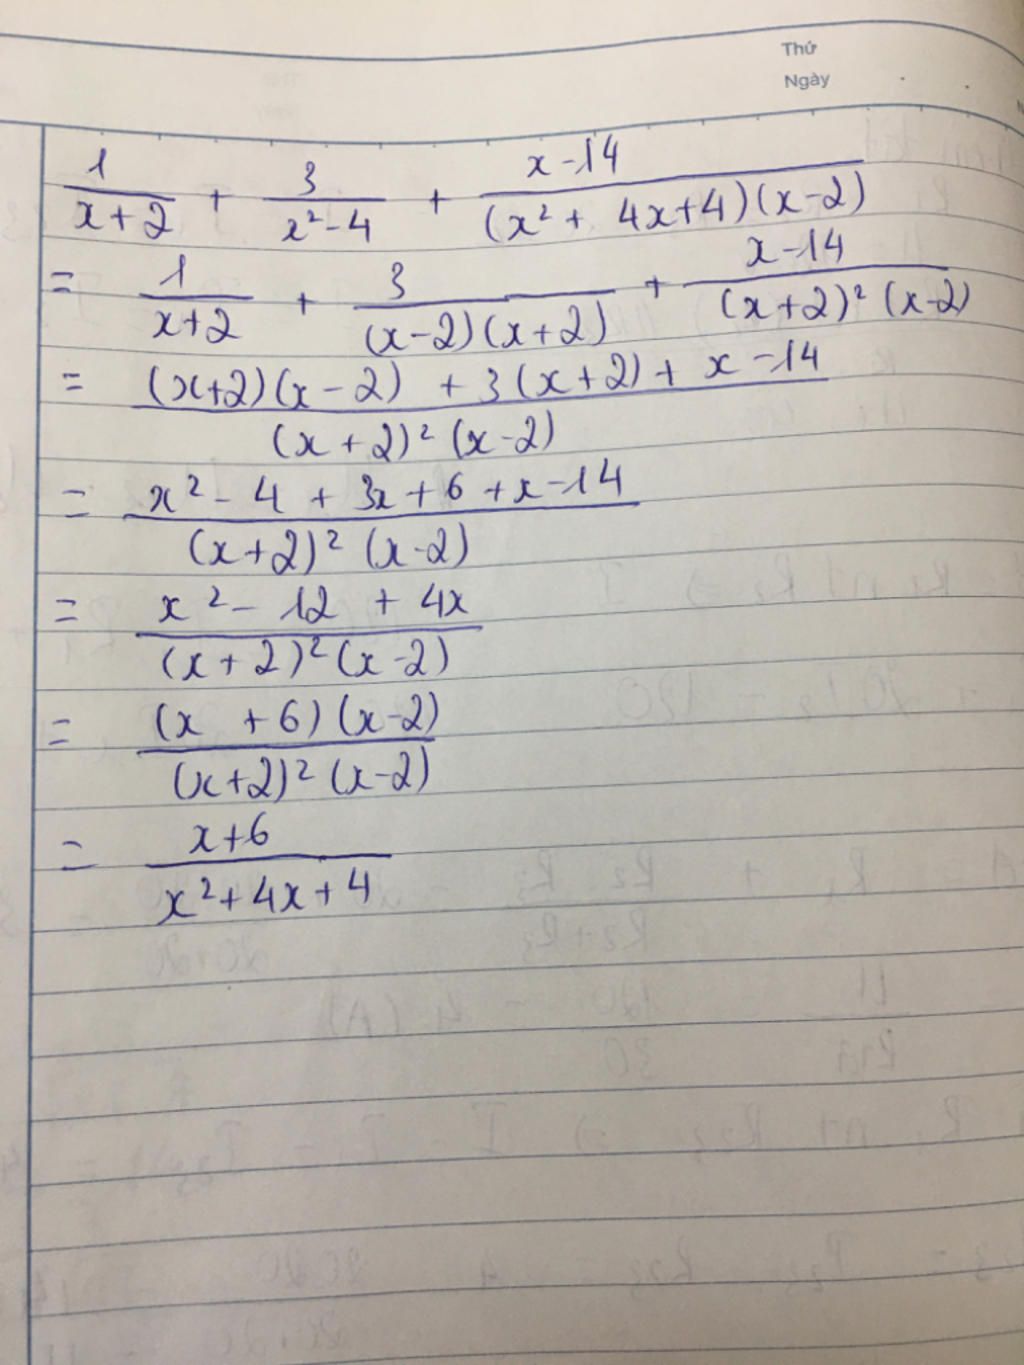 Thứ
Ngày
1/(x+2) + 3/(x²-4) + (x-14)/((x²+4x+4)(x-2))
= 1/(x+2) + 3/((x-2)(x+2)) + (x-14)/((x+2)²(x-2))
= ((x+2)(x-2) + 3(x+2) + x-14)/((x+2)²(x-2))
= (x²-4+3x+6+x-14)/((x+2)²(x-2))
= (x²-12+4x)/((x+2)²(x-2))
= ((x+6)(x-2))/((x+2)²(x-2))
= (x+6)/(x²+4x+4)